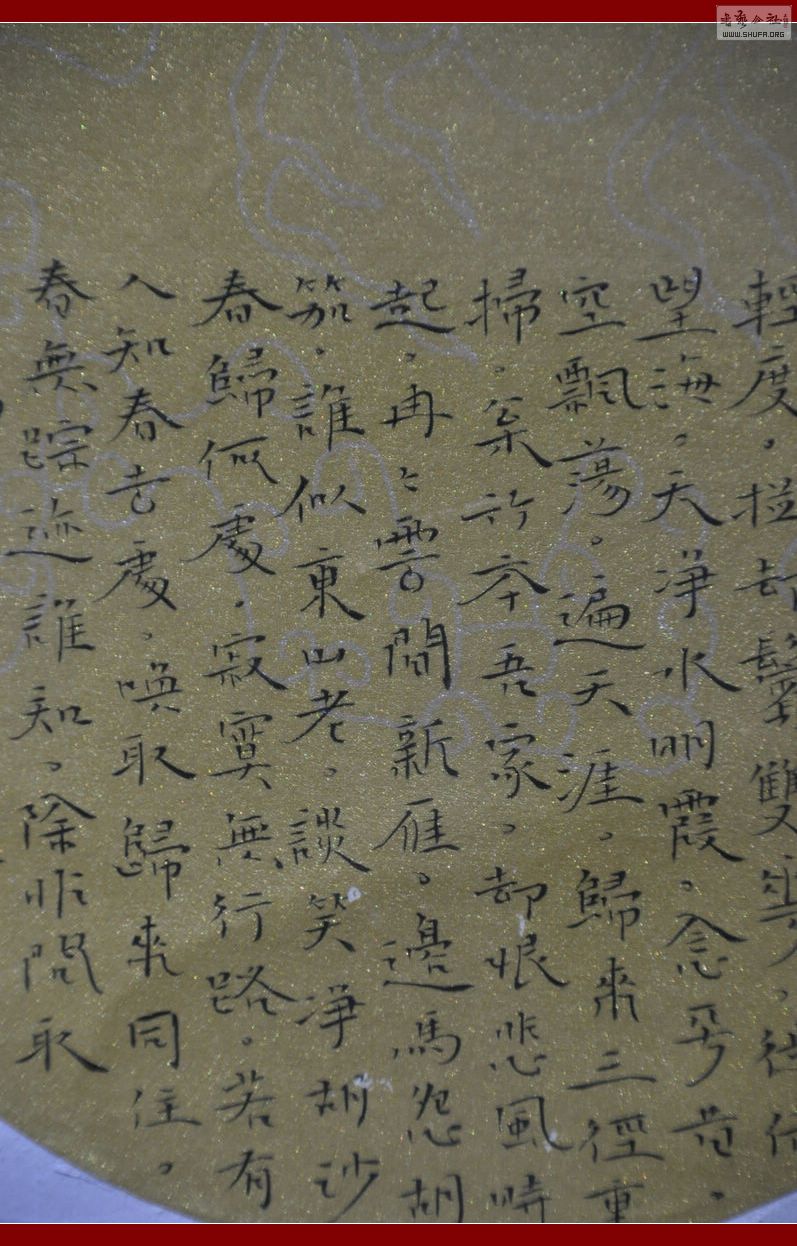 輕度。拦却鬢雙華。徙倚
望海。天净水明霞。念平昔。
空飄蕩。遍天涯。歸來三徑重
掃。松竹本吾家。却恨悲風時
起。冉〻雲間新雁。邊馬怨胡
笳。誰似東山老。談笑净胡沙
春歸何處。寂寞無行路。若有
人知春去處。喚取歸來同住。
春無踪迹誰知。除非問取
書藝公社
WWW.SHUFA.ORG